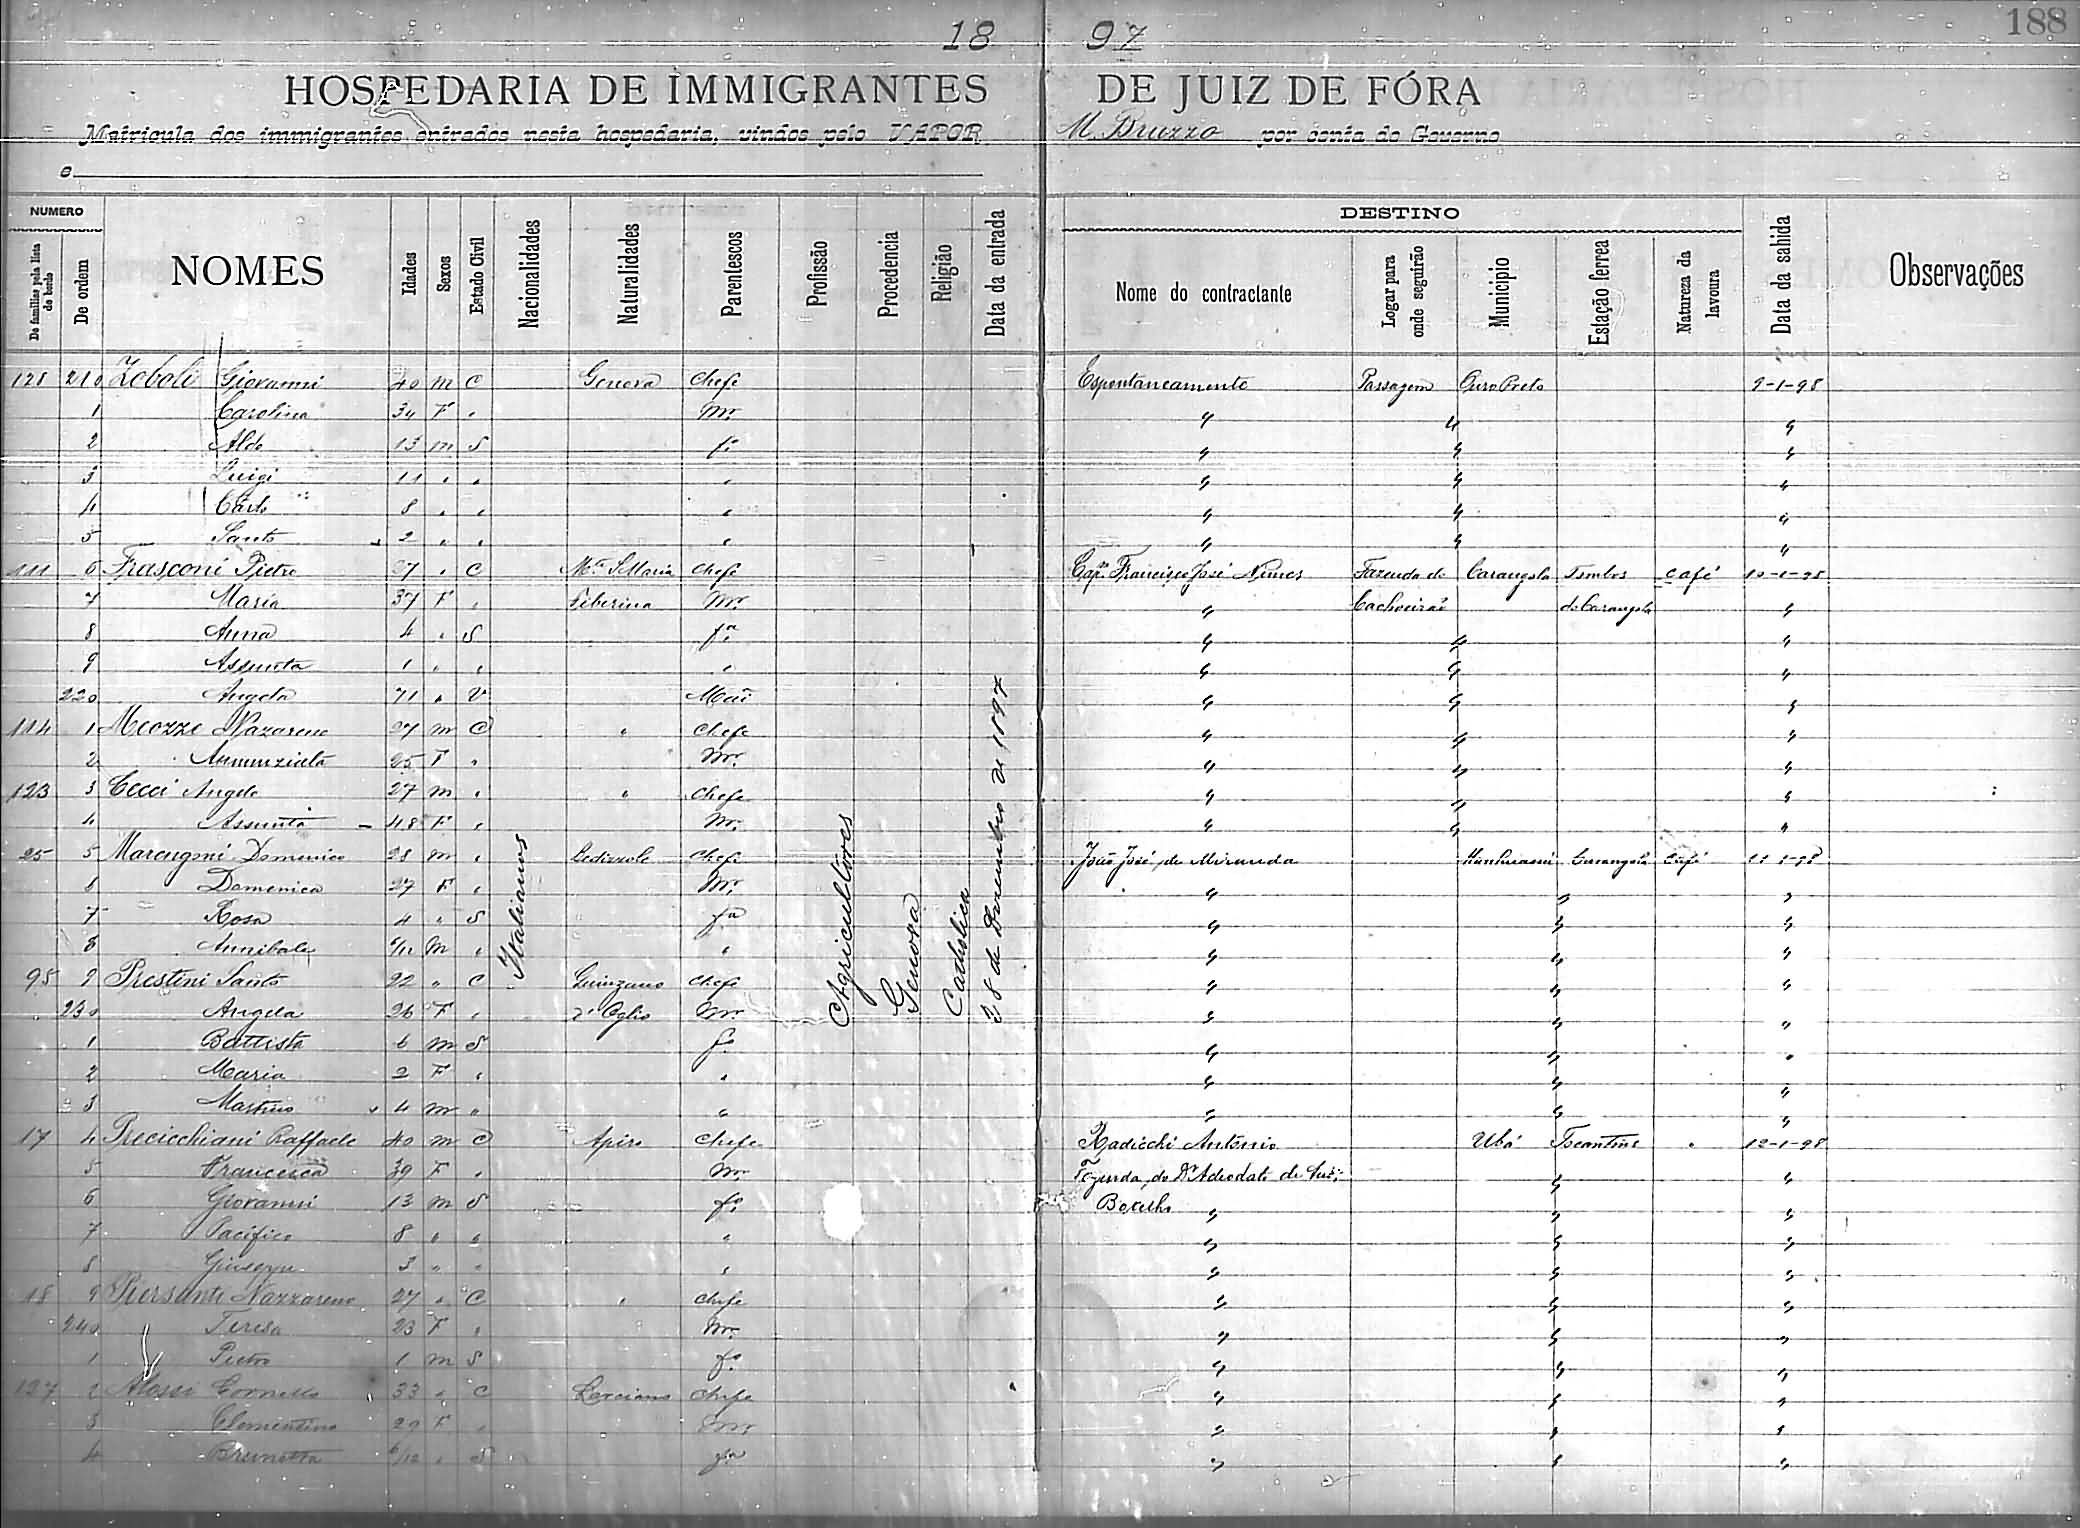 188
18 97
HOSPEDARIA DE IMMIGRANTES DE JUIZ DE FÓRA
Matricula dos immigrantes entrados nesta hospedaria, vindos pelo VAPOR M. Bruzzo por conta do Governo
e
NUMERO DESTINO
De familias pela lista de bordo De ordem NOMES Idades Sexos Estado Civil Nacionalidades Naturalidades Parentescos Profissão Procedencia Religião Data da entrada Nome do contractante Logar para onde seguirão Municipio Estação ferrea Natureza da lavoura Data da sahida Observações
Italianos Agricultores Genova Catholica 28 de Dezembro de 1897
210 Zoboli Giovanni 40 M C Genova Chefe Espontaneamente Passagem Ouro Preto 9-1-98
1 Carolina 34 F " Mr. " " "
2 Aldo 13 M S fo " " "
3 Luigi 11 " " " " " "
4 Carlo 8 " " " " " "
5 Santo 2 " " " " " "
111 6 Frasconi Pietro " C Mte S. Maria Chefe Capm. Francisco José Nunes Fazenda da Carangola Tombos Café 10-1-98
7 Maria 37 F " Tiberina Mr. " Cachoeira do Carangola "
8 Anna 4 " S fa " " "
9 Assunta 1 " " " " " "
220 Angela 71 " V Mãi " " "
114 1 Meozze Nazareno 27 M C " Chefe " " "
2 Annunziata 25 F " Mr. " " "
123 3 Cecci Angelo 27 M " " Chefe " " "
4 Assunta 48 F " Mr. " " "
25 5 Marengoni Domenico 28 M " Chefe João José de Miranda Carangola Café 11-1-98
6 Domenica 27 F " Mr. " " "
7 Rosa 4 " S fa " " "
8 Annibale M " " " " "
95 9 Prestini Santo 22 " C Quinzano Chefe " " "
230 Angela 26 F " d'Oglio Mr " " "
1 Battista 6 M S fo " " "
2 Maria 2 F " " " " "
3 Martino 4 M " " " " "
17 4 Precicchiani Raffaele 40 M C Apiro Chefe Radicchi Antonio Ubá Tocantins " 12-1-98
5 Francesca 39 F " Mr. Fazenda do Dr Adeodato de "
6 Giovanni 13 M S fo Botelho " " "
7 Pacifico 8 " " " " " "
8 Giuseppe 3 " " " " " "
18 9 Piersanti Nazzareno 27 " C " Chefe " " "
240 Teresa 23 F " Mr. " " "
1 Pietro 1 M S fo " " "
127 2 Alossi 33 " C Chefe " " "
3 Clementina 29 F " Mr " " "
4 Brunetta 6/12 " S fa " " "